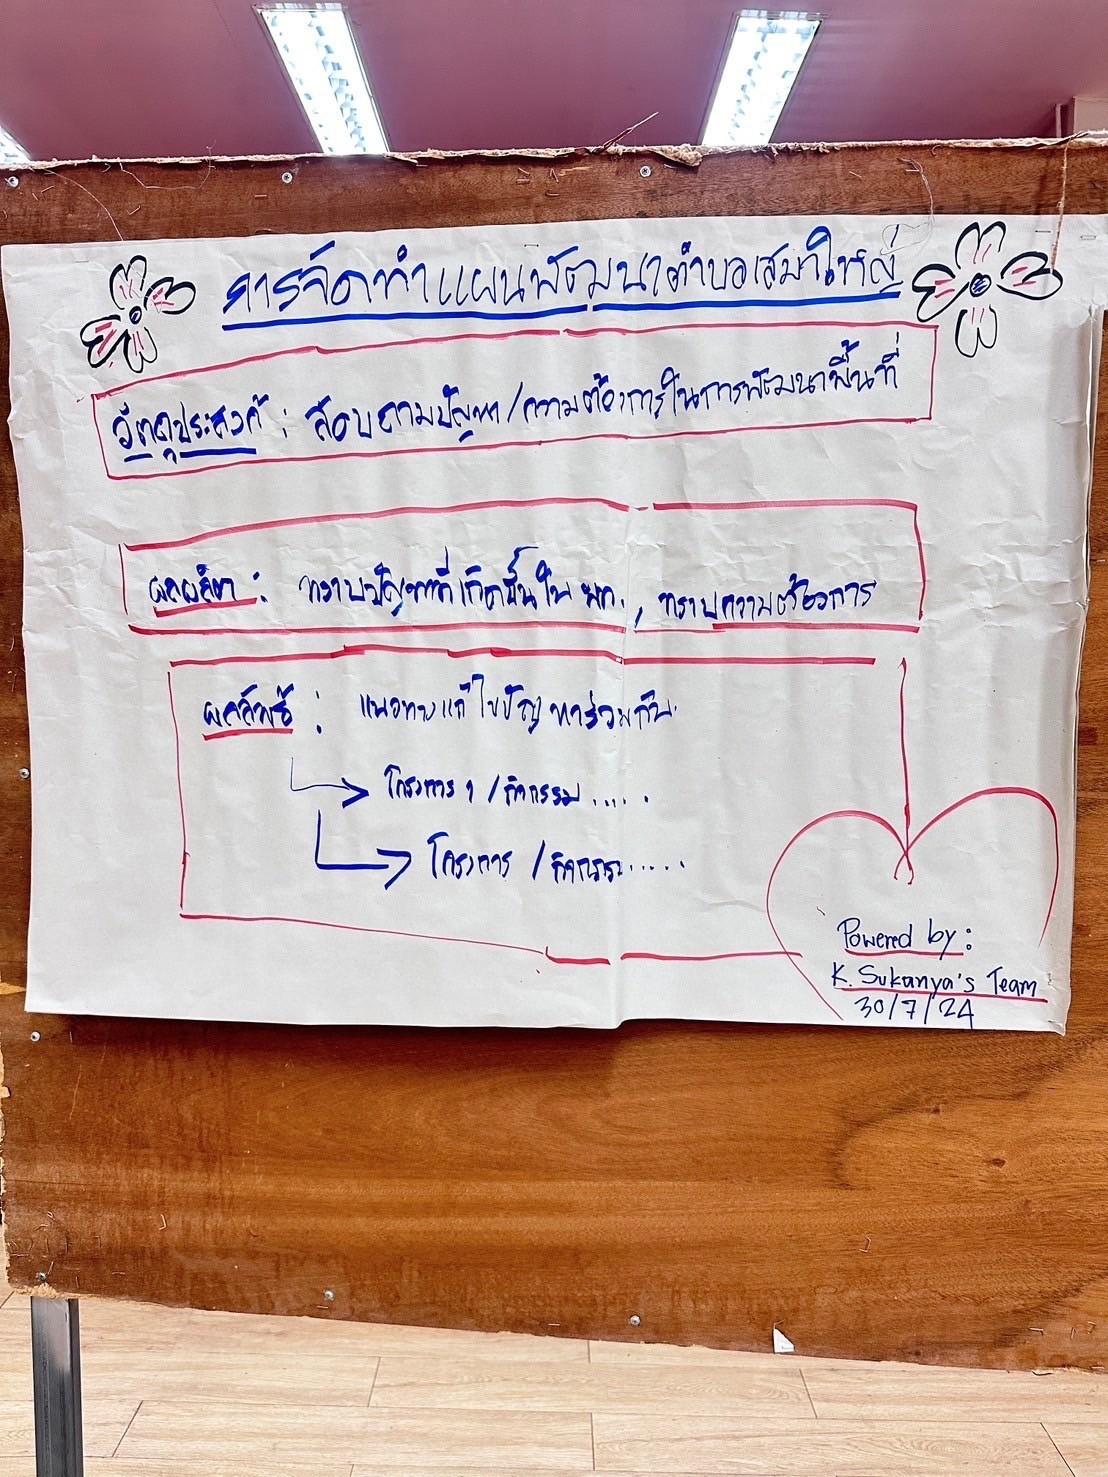 การจัดทำแผนพัฒนาตำบลเสมาใหญ่
วัตถุประสงค์ : สอบถามปัญหา/ความต้องการในการพัฒนาพื้นที่
ผลผลิต : ทราบปัญหาที่เกิดขึ้นใน พท. , ทราบความต้องการ
ผลลัพธ์ : แนวทางแก้ไขปัญหาร่วมกัน
โครงการ 1 /กิจกรรม.....
โครงการ /กิจกรรม.....
Powered by :
K. Sukanya's Team
30/7/24